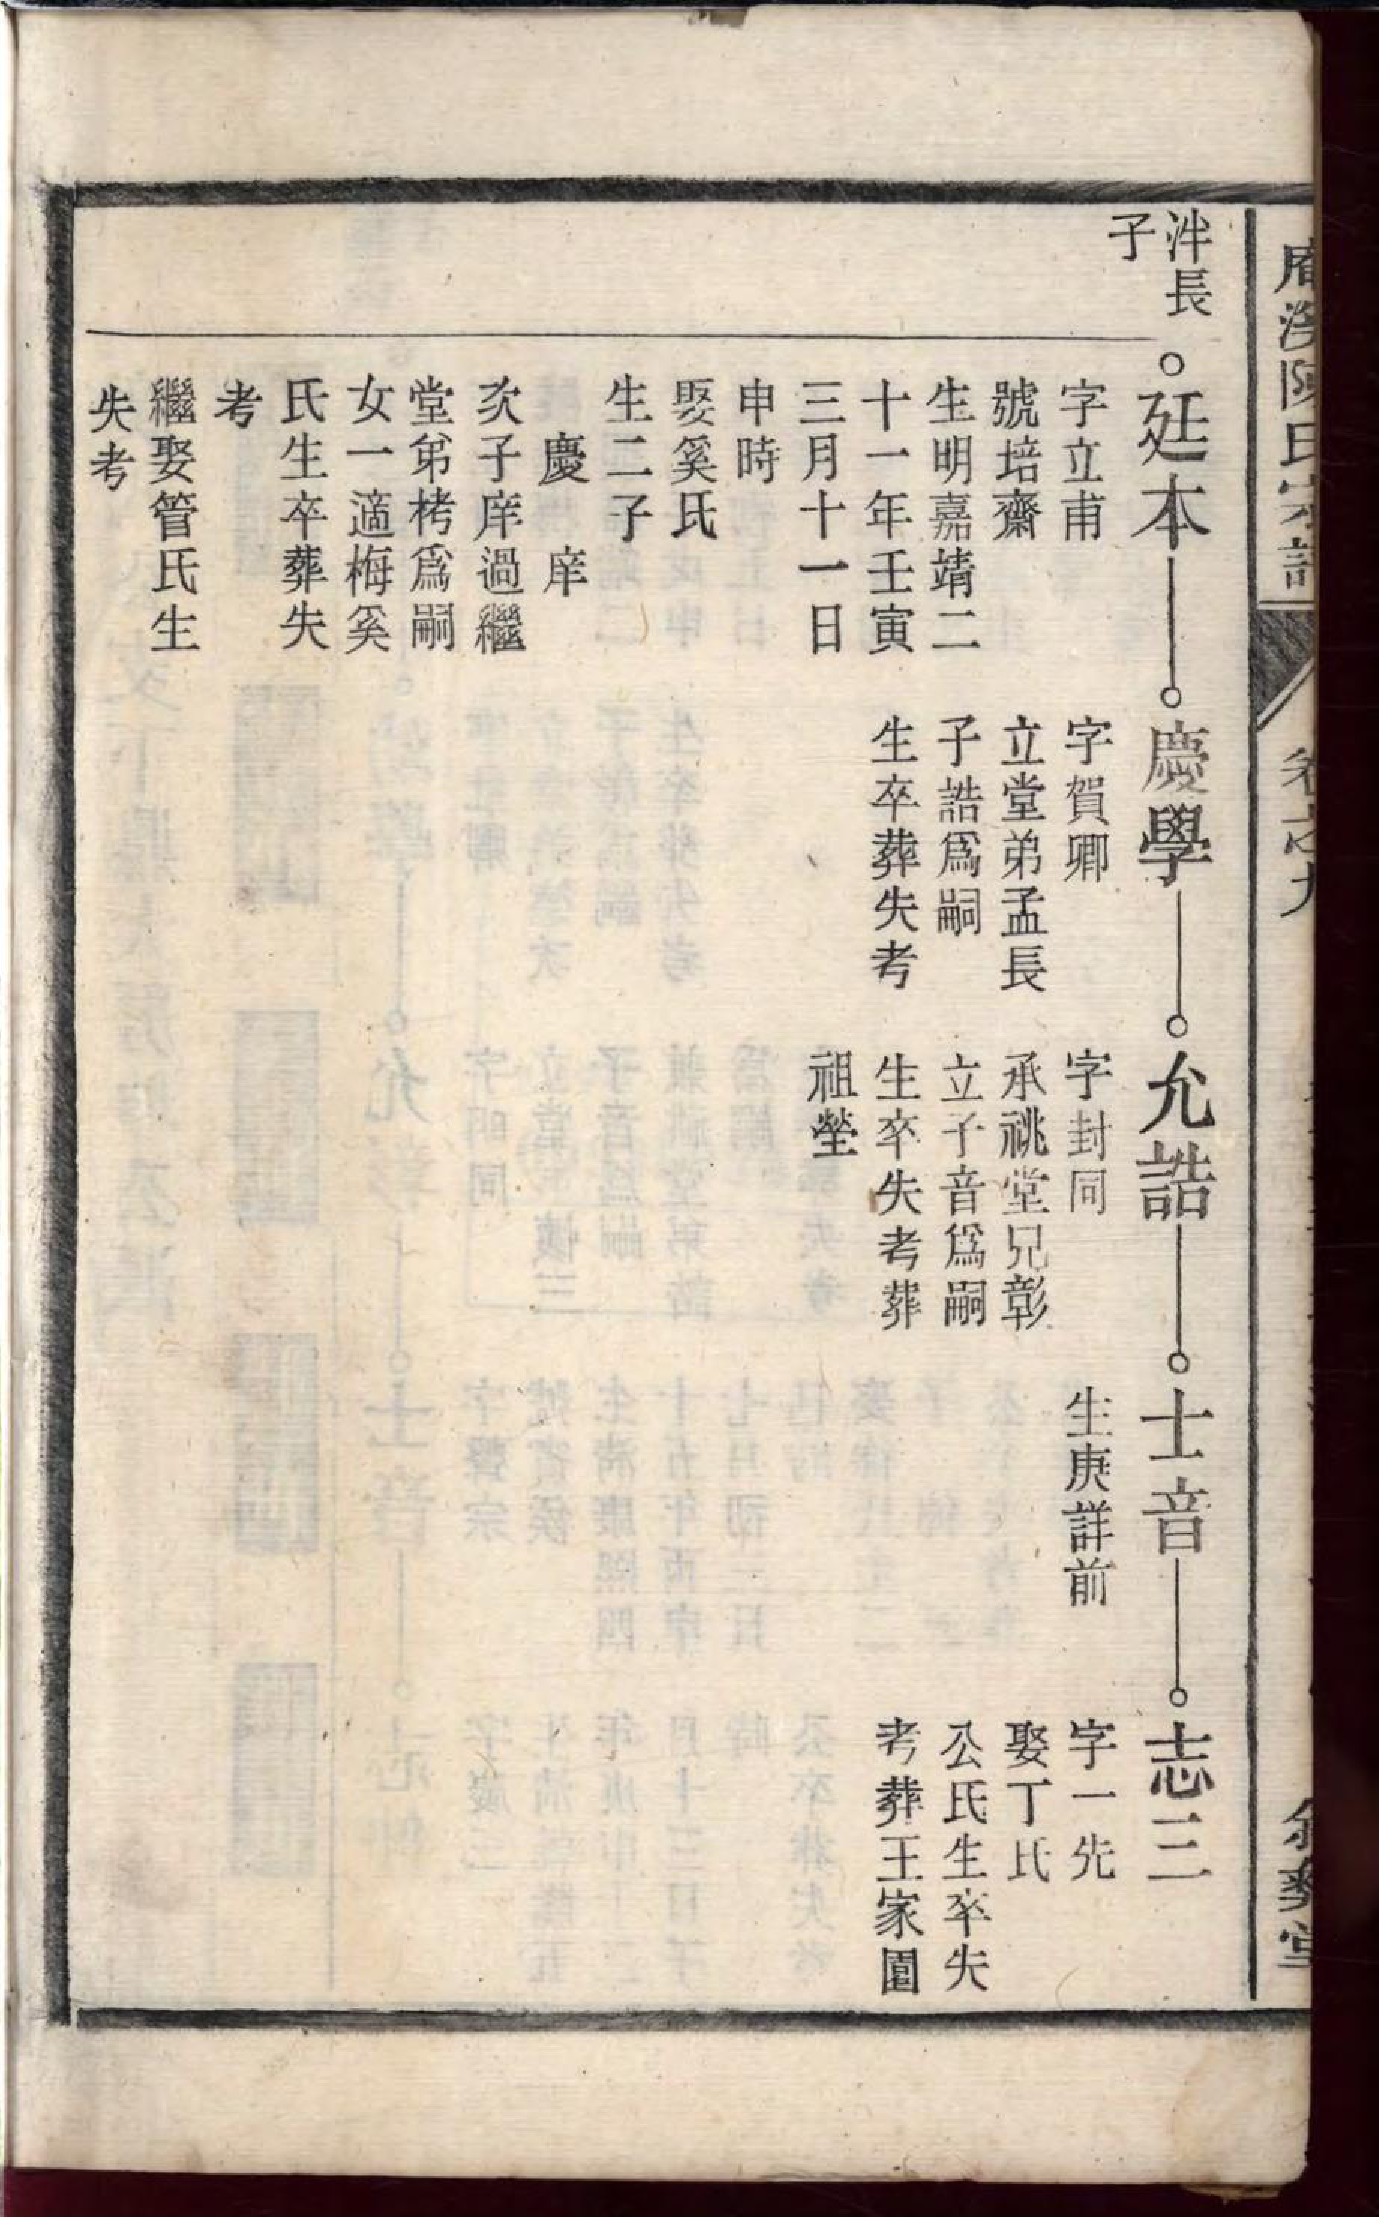 泮長
子
廷本
字立甫
號培齋
生明嘉靖二
十一年壬寅
三月十一日
申時
娶奚氏
生二子
慶 庠
次子庠過繼
堂弟栲爲嗣
女一適梅奚
氏生卒葬失
考
繼娶管氏生
失考
慶學
字賀卿
立堂弟孟長
子誥爲嗣
生卒葬失考
允誥
字封同
承祧堂兄彰
立子音爲嗣
生卒失考葬
祖塋
士音
生庚詳前
志三
字一先
娶丁氏
公氏生卒失
考葬王家園
陳氏宗譜
卷之九